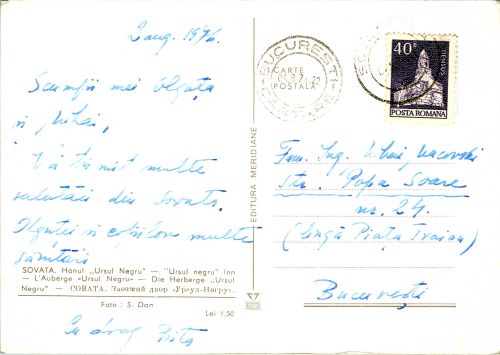 2 aug. 1976.
Scumpii mei Olguța
și Mihai,
Vă trimit multe
salutări din Sovata.
Olguței și copiilor multe
sănătăți
SOVATA. Hanul „Ursul Negru" — "Ursul negru" Inn
— L'Auberge «Ursul Negru» — Die Herberge „Ursul
Negru" — СОВАТА. Заезжий двор «Урсул-Негру».
Foto : S. Dan
Lei 1,50
Cu drag Bița
EDITURA MERIDIANE
BUCUREȘTI
CARTE
POȘTALĂ
CARTARE
40
POSTA ROMANA
Fam. Ing. Mihai
str. Popa Soare
nr. 24.
(lîngă Piața Traian)
București